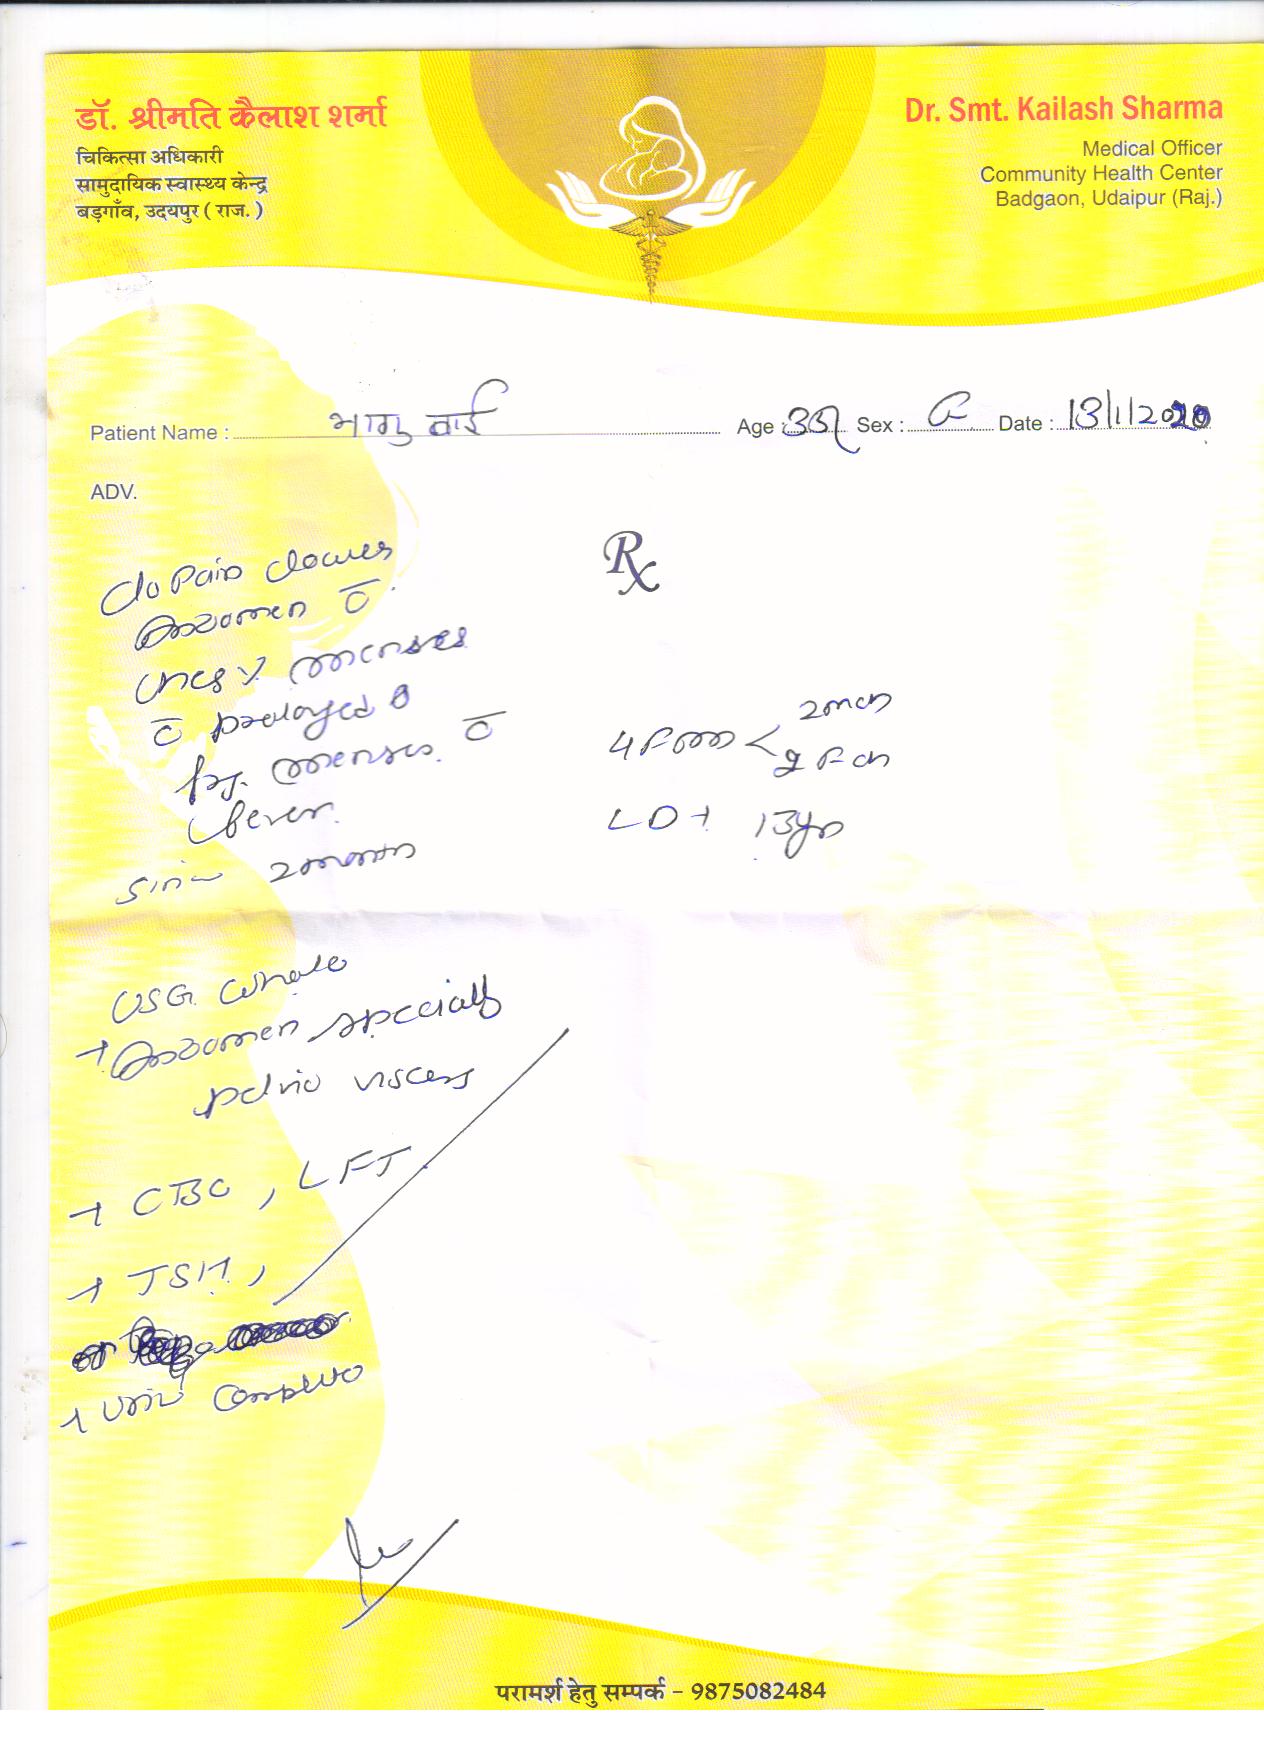 डॉ. श्रीमति कैलाश शर्मा
चिकित्सा अधिकारी
सामुदायिक स्वास्थ्य केन्द्र
बड़गाँव, उदयपुर ( राज. )
Dr. Smt. Kailash Sharma
Medical Officer
Community Health Center
Badgaon, Udaipur (Raj.)
Patient Name : भागु बाई Age : 35y Sex : F Date : 13/1/2020
ADV.
Rx
C/o Pain lower
abdomen c̄
menses
c̄ prolonged
menses c̄
fever
Sin 2 month
4 FTND < 2 mch
2 F ch
LD → 13yr
USG whole
→ Abdomen specially
pelvic viscera
→ CBC, LFT
→ TSH,
→ Urine Complete
परामर्श हेतु सम्पर्क - 9875082484